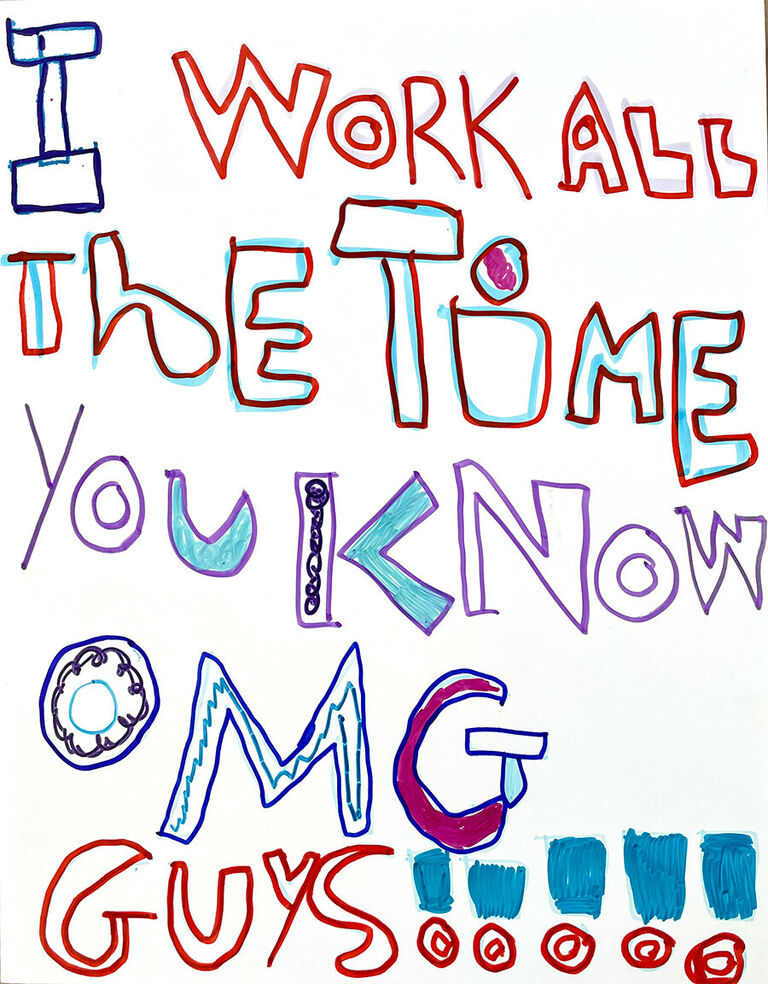 I WORK ALL
ThE TiME
YOU KNOW
OMG
GUYS!!!!!